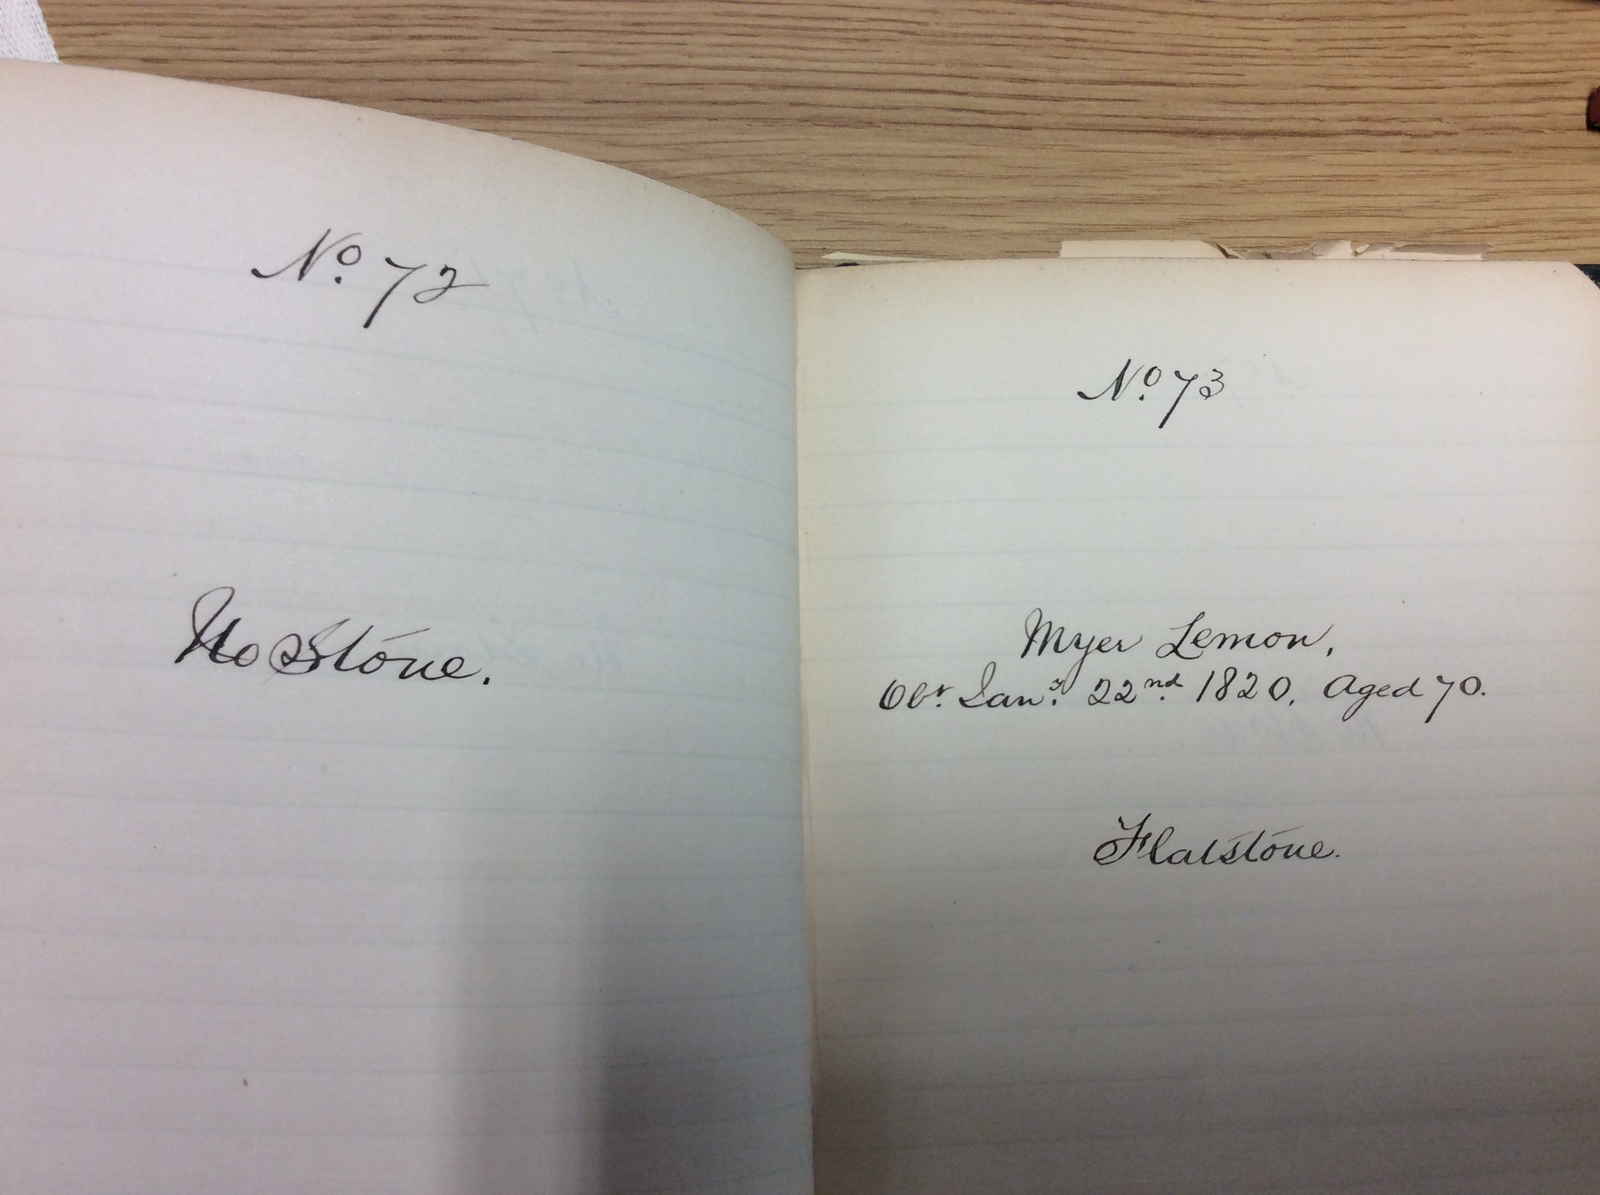 No. 72
No Stone.
No. 73
Myer Lemon,
Obt. Jany. 22nd. 1820. Aged 70.
Flatstone.